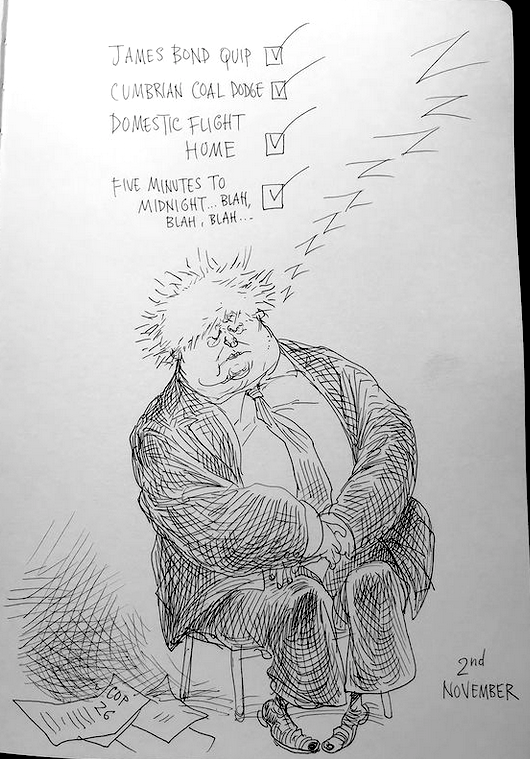 JAMES BOND QUIP
CUMBRIAN COAL DODGE
DOMESTIC FLIGHT
HOME
FIVE MINUTES TO
MIDNIGHT... BLAH,
BLAH, BLAH...
Z Z Z Z Z Z Z Z Z
COP
26
2nd
NOVEMBER